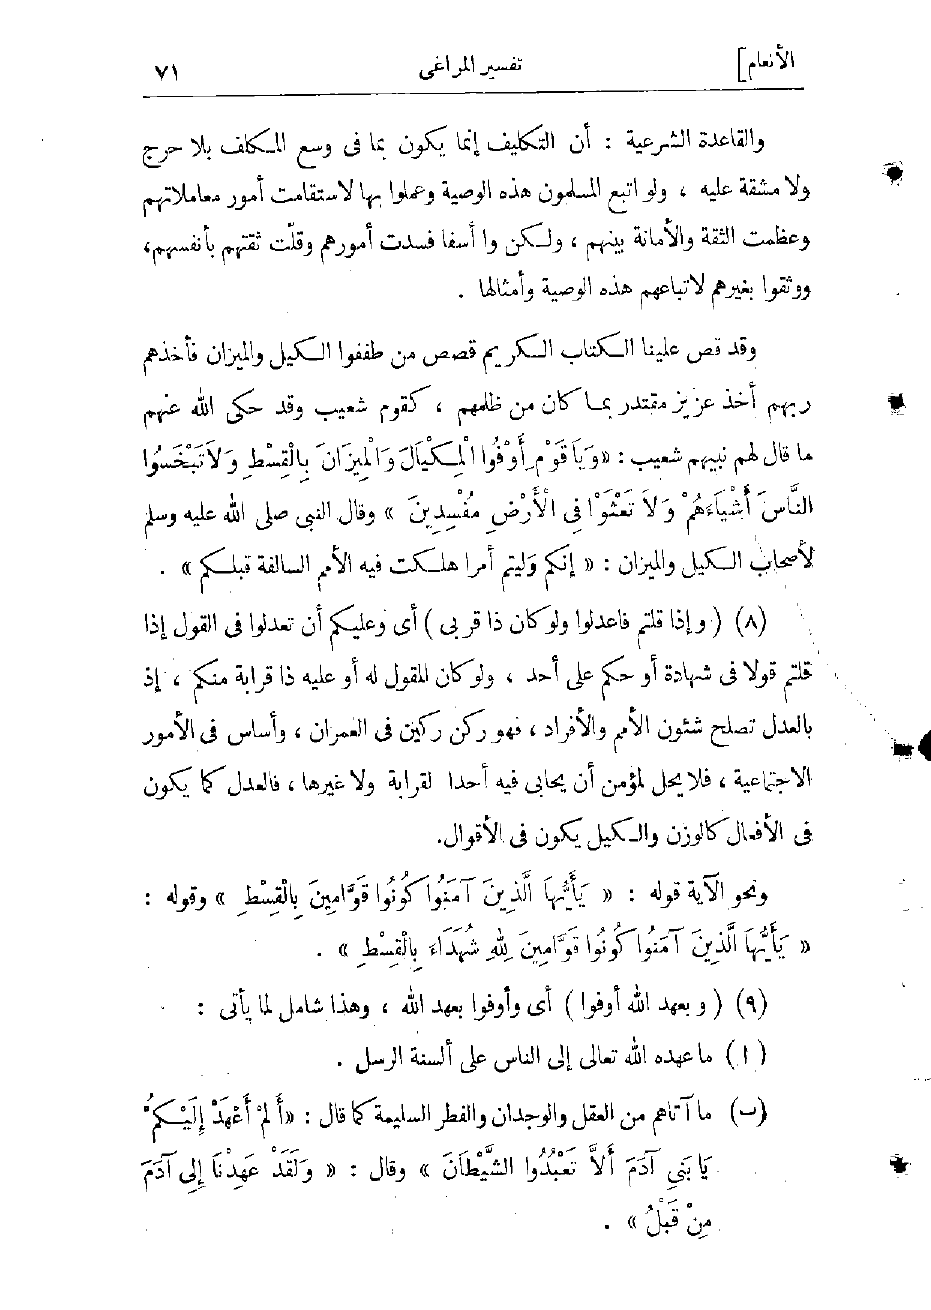 الأنعام] تفسير المراغى ٧١
والقاعدة الشرعية : أن التكليف إنما يكون بما فى وسع المكلف بلا حرج
ولا مشقة عليه ، ولو اتبع المسلمون هذه الوصية وعملوا بها لاستقامت أمور معاملاتهم
وعظمت الثقة والأمانة بينهم ، ولكن وا أسفا فسدت أمورهم وقلّت ثقتهم بأنفسهم،
ووثقوا بغيرهم لاتباعهم هذه الوصية وأمثالها .
وقد قص علينا الكتاب الكريم قصص من طففوا الكيل والميزان فأخذهم
ربهم أخذ عزيز مقتدر بما كان من ظلمهم ، كقوم شعيب وقد حكى الله عنهم
ما قال لهم نبيهم شعيب : «وَيَا قَوْمِ أَوْفُوا الْمِكْيَالَ وَالْمِيزَانَ بِالْقِسْطِ وَلَا تَبْخَسُوا
النَّاسَ أَشْيَاءَهُمْ وَلَا تَعْثَوْا فِى الْأَرْضِ مُفْسِدِينَ » وقال النبى صلى الله عليه وسلم
لأصحاب الكيل والميزان : « إنكم وَليتم أمرا هلكت فيه الأمم السالفة قبلكم » .
(٨) ( وإذا قلتم فاعدلوا ولو كان ذا قربى ) أى وعليكم أن تعدلوا فى القول إذا
قلتم قولا فى شهادة أو حكم على أحد ، ولو كان المقول له أو عليه ذا قرابة منكم ، إذ
بالعدل تصلح شئون الأمم والأفراد ، فهو ركن ركين فى العمران ، وأساس فى الأمور
الاجتماعية ، فلا يحل لمؤمن أن يحابى فيه أحدا لقرابة ولا غيرها ، فالعدل كما يكون
فى الأفعال كالوزن والكيل يكون فى الأقوال.
ونحو الآية قوله : « يَأَيُّهَا الَّذِينَ آمَنُوا كُونُوا قَوَّامِينَ بِالْقِسْطِ » وقوله :
« يَأَيُّهَا الَّذِينَ آمَنُوا كُونُوا قَوَّامِينَ لِلهِ شُهَدَاءَ بِالْقِسْطِ » .
(٩) ( وبعهد الله أوفوا ) أى وأوفوا بعهد الله ، وهذا شامل لما يأتى :
( ا ) ما عهده الله تعالى إلى الناس على ألسنة الرسل .
(ب) ما آتاهم من العقل والوجدان والفطر السليمة كما قال : «أَلَمْ أَعْهَدْ إِلَيْكُمْ
يَا بَنِى آدَمَ أَلاَّ تَعْبُدُوا الشَّيْطَانَ » وقال : « وَلَقَدْ عَهِدْنَا إِلَى آدَمَ
مِنْ قَبْلُ » .